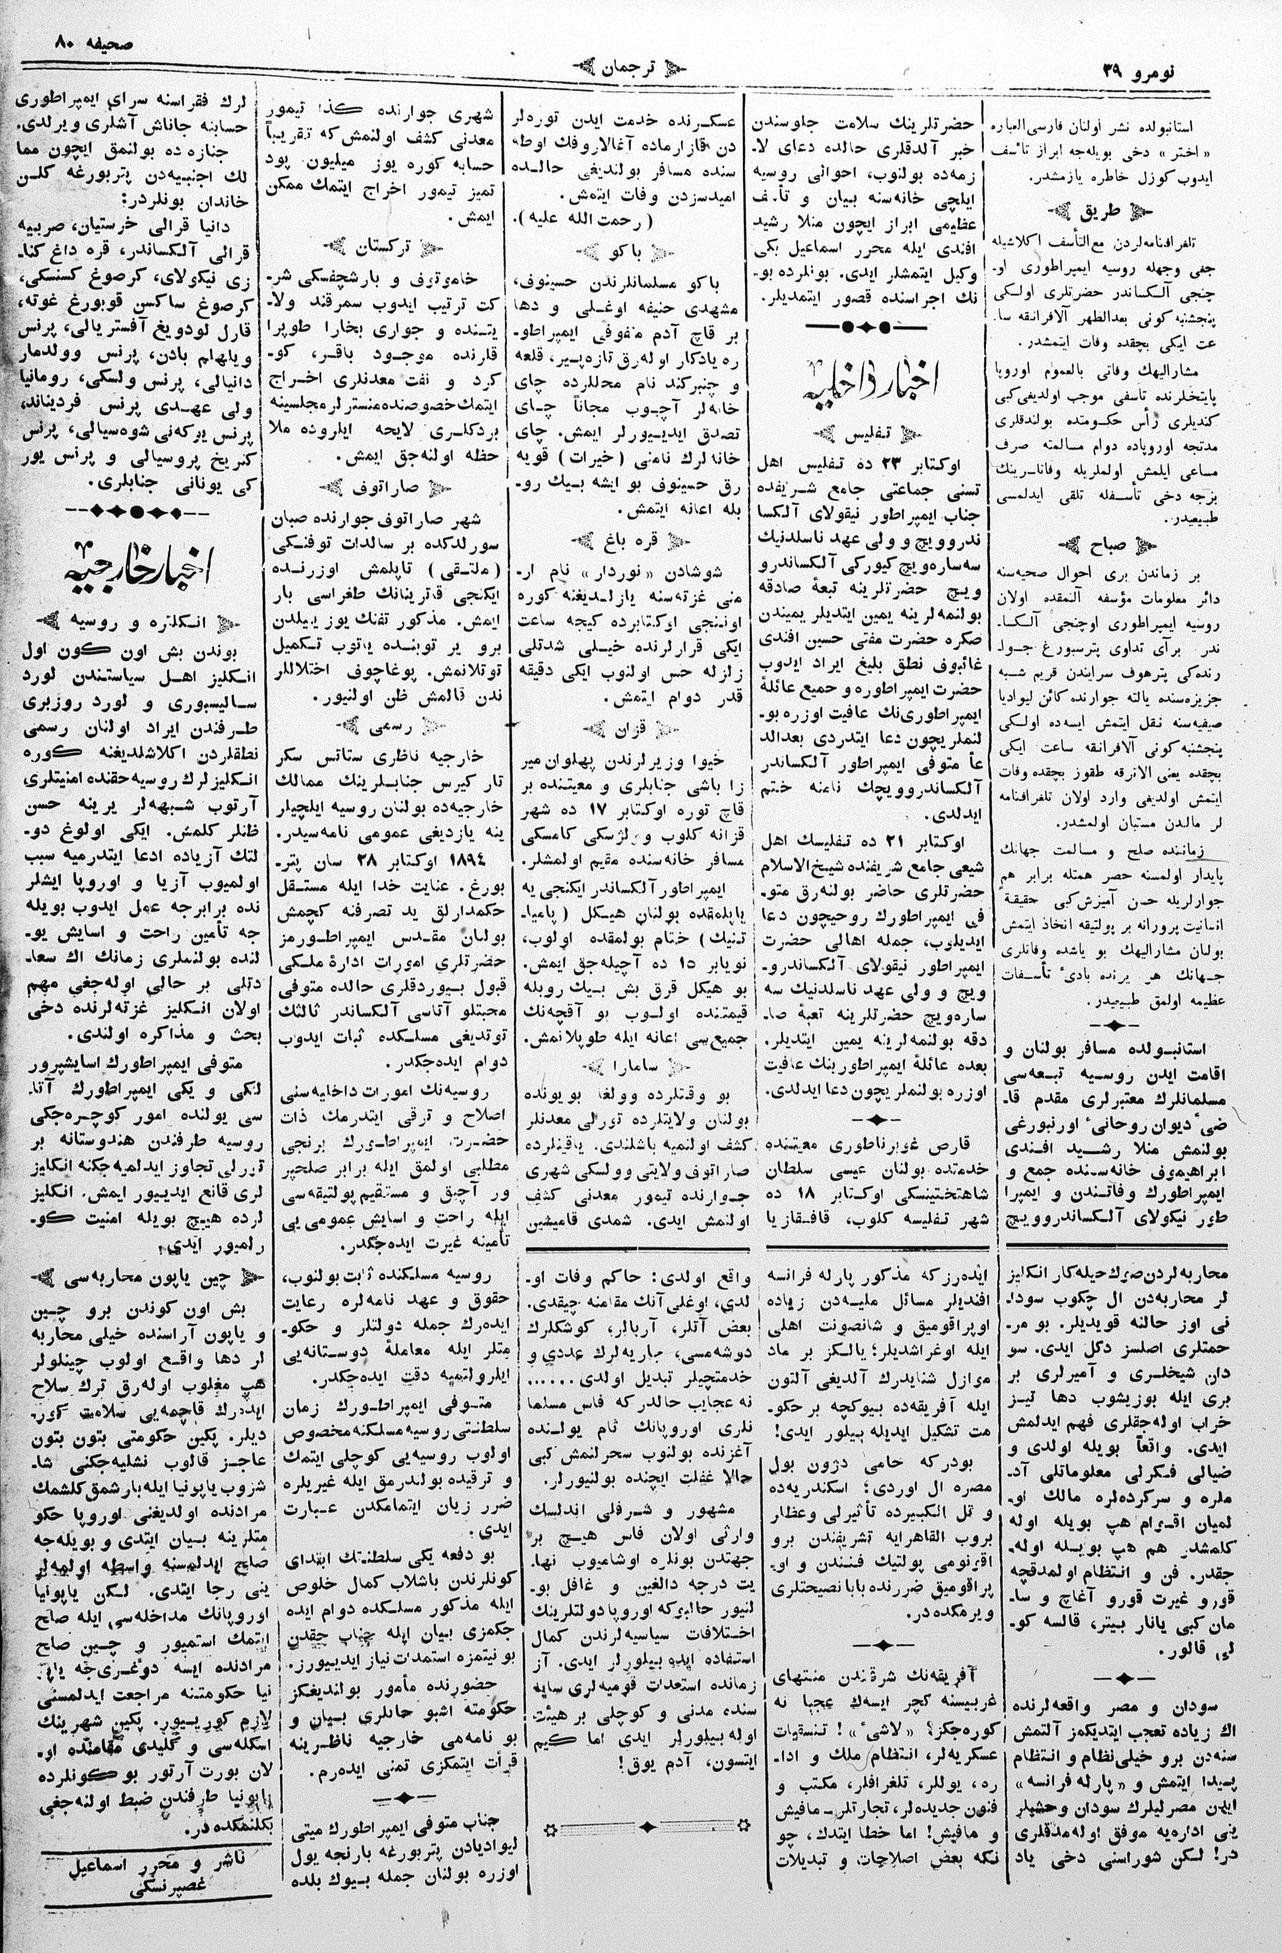 نومرو ۳۹
ترجمان
صحیفه ۸۰
استانبولده نشر اولنان فارسی العباره
« اختر » دخی بویله‌جه ابراز تأسف
ایدوب کوزل خاطره یازمشدر.
طریق
تلغرافنامه‌لردن مع التأسف اکلاشیله
جغی وجهله روسیه ایمپراطوری او-
چنجی آلکساندر حضرتلری اولکی
پنجشنبه کونی بعدالظهر آلافرانقه سا-
عت ایکی بچقده وفات ایتمشدر.
مشارالیهك وفاتی بالعموم اوروپا
پایتختلرنده تأسفی موجب اولدیغی کبی
کندیلری رأس حکومتده بولندقلری
مدتجه اوروپاده دوام مسالمته صرف
مساعی ایلمش اولملریله وفاتلرینك
بزجه دخی تأسفله تلقی ایدلمسی
طبیعیدر.
صباح
بر زماندن بری احوال صحیه‌سنه
دائر معلومات مؤسفه آلنمقده اولان
روسیه ایمپراطوری اوچنجی آلکسا-
ندر برای تداوی پترسبورغ جوا-
رنده‌کی پترهوف سرایندن قریم شبه
جزیره‌سنده یالته جوارنده کائن لیوادیا
صیفیه‌سنه نقل ایتمش ایسه‌ده اولکی
پنجشنبه کونی آلافرانقه ساعت ایکی
بچقده یعنی الاترقه طقوز بچقده وفات
ایتمش اولدیغی وارد اولان تلغرافنامه
لر مالندن مستبان اولمشدر.
زماننده صلح و مسالمت جهانك
پایدار اولمسنه حصر همتله برابر هم
جوارلریله حسن آمیزش کبی حقیقة
انسانیت پرورانه بر پولتیقه اتخاذ ایتمش
بولنان مشارالیهك بو یاشده وفاتلری
جهانك هر یرنده بادئ تأسفات
عظیمه اولمق طبیعیدر.
استانبولده مسافر بولنان و
اقامت ایدن روسیه تبعه‌سی
مسلمانلرك معتبرلری مقدم قا-
ضئ دیوان روحانئ اورنبورغی
بولنمش منلا رشید افندی
ابراهیموف خانه‌سنده جمع و
ایمپراطورك وفاتندن و ایمپرا
طور نیکولای آلکساندروویچ
حضرتلرینك سلامت جلوسندن
خبر آلدقلری حالده دعای لا-
زمه‌ده بولنوب، احوالی روسیه
ایلچی خانه‌سنه بیان و تأسف
عظیمی ابراز ایچون منلا رشید
افندی ایله محرر اسماعیل بکی
وکیل ایتمشلر ایدی. بونلرده بو-
نك اجراسنده قصور ایتمدیلر.
اخبار داخلیه
تفلیس
اوکتابر ۲۳ ده تفلیس اهل
تسنی جماعتی جامع شریفنده
جناب ایمپراطور نیقولای آلکسا
ندروویچ و ولی عهد تاسلدنیك
سه‌ساره‌ویچ کیورکی آلکساندرو
ویچ حضرتلرینه تبعۀ صادقه
بولنمه‌لرینه یمین ایتدیلر یمیندن
صکره حضرت مفتی حسین افندی
غائبوف نطق بلیغ ایراد ایدوب
حضرت ایمپراطوره و جمیع عائلۀ
ایمپراطوری‌نك عافیت اوزره بو-
لنملریچون دعا ایتدردی بعدالد
عأ متوفی ایمپراطور آلکساندر
آلکساندروویچك نامنه ختم
ایدلدی.
اوکتابر ۲۱ ده تفلیسك اهل
شیعی جامع شریفنده شیخ الاسلام
حضرتلری حاضر بولنه‌رق متو-
فی ایمپراطورك روحیچون دعا
ایدیلوب، جمله اهالی حضرت
ایمپراطور نیقولای آلکساندرو-
ویچ و ولی عهد ناسلدنیك سه
ساره‌ویچ حضرتلرینه تعبۀ صا-
دقه بولنمه‌لرینه یمین ایتدیلر.
بعده عائلۀ ایمپراطورینك عافیت
اوزره بولنملریچون دعا ایدلدی.
قارص غوبرناطوری معیتنده
خدمتده بولنان عیسی سلطان
شاهتختینسکی اوکتابر ۱۸ ده
شهر تفلیسه کلوب، قافقازیا
عسکرنده خدمت ایدن توره‌لر
دن قازارماده آغالاروفك اوطه
سنده مسافر بولندیغی حالده
امیدسزدن وفات ایتمش.
( رحمت الله علیه ).
باکو
باکو مسلمانلرندن حسینوف،
مشهدی حنیفه اوغلی و دها
بر قاچ آدم متوفی ایمپراطو-
ره یادکار اوله‌رق تازه‌پیر، قلعه
و چنبرکند نام محللرده چای
خانه‌لر آچوب مجاناً چای
تصدق ایدییورلر ایمش. چای
خانه‌لرك نامنی ( خیرات ) قویه
رق حسینوف بو ایشه بیك رو-
بله اعانه ایتمش.
قره باغ
شوشادن « نوردار » نام ار-
منی غزته‌سنه یازلدیغنه کوره
اوننجی اوکتابرده کیجه ساعت
ایکی قرارلرنده خیلی شدتلی
زلزله حس اولنوب ایکی دقیقه
قدر دوام ایتمش.
قزان
خیوا وزیرلرندن پهلوان میر
زا باشی جنابلری و معیتنده بر
قاچ توره اوکتابر ۱۷ ده شهر
قزانه کلوب وولژسکی کامسکی
مسافر خانه‌سنده مقیم اولمشلر.
ایمپراطور آلکساندر ایکنجی یه
یاپلمقده بولنان هیکل ( پامیا-
تنیك ) ختام بولمقده اولوب،
نویابر ۱۵ ده آچیله‌جق ایمش.
بو هیکل قرق بش بیك روبله
قیمتنده اولوب بو آقچه‌نك
جمیع‌سی اعانه ایله طوپلانمش.
سامارا
بو وقتلرده وولغا بویونده
بولنان ولایتلرده تورلی معدنلر
کشف اولنمیه باشلندی. یاقینلرده
صاراتوف ولایتی وولسکی شهری
جوارنده تیمور معدنی کشف
اولنمش ایدی. شمدی قامیشین
شهری جوارنده کذا تیمور
معدنی کشف اولنمش که تقریباً
حسابه کوره یوز میلیون پود
تمیز تیمور اخراج ایتمك ممکن
ایمش.
ترکستان
خاموتوف و بارشچفسکی شر-
کت ترتیب ایدوب سمرقند ولا-
یتنده و جواری بخارا طوپرا
قلرنده موجود باقر، کو-
کرد و نفت معدنلری اخراج
ایتمك خصوصنده منسترلر مجلسینه
بردکلری لایحه ایلروده ملا
حظه اولنه‌جق ایمش.
صاراتوف
شهر صاراتوف جوارنده صبان
سورلدکده بر سالدات توفنکی
( ملتقی ) تاپلمش اوزرنده
ایکنجی قاترینانك طغراسی بار
ایمش. مذکور تفنك یوز ییلدن
برو یر توبنده یاتوب تکمیل
توتلانمش. پوغاچوف اختلاللر
ندن قالمش ظن اولنیور.
رسمی
خارجیه ناظری ستاتس سکر
تار کیرس جنابلرینك ممالك
خارجیه‌ده بولنان روسیه ایلچیلر
ینه یازدیغی عمومی نامه‌سیدر.
۱۸۹۴ اوکتابر ۲۸ سان پتر-
بورغ. عنایت خدا ایله مستقل
حکمدارلق ید تصرفنه کچمش
بولنان مقدس ایمپراطورمز
حضرتلری امورات ادارۀ ملکی
قبول بیوردقلری حالده متوفی
محبتلو آتاسی آلکساندر ثالثك
توتدیغی مسلکده ثبات ایدوب
دوام ایده‌جکدر.
روسیه‌نك امورات داخلیه‌سنی
اصلاح و ترقی ایتدرمك ذات
حضرت ایمپراطورك برنجی
مطلبی اولمق ایله برابر صلحپر
ور آچیق و مستقیم پولتیقه‌سی
ایله راحت و اسایش عمومی یی
تأمینه غیرت ایده‌جکدر.
روسیه مسلکنده ثابت بولنوب،
حقوق و عهد نامه‌لره رعایت
ایده‌رك جمله دولتلر و حکو-
متلر ایله معاملۀ دوستانه‌یی
ایلرولتمیه دقت ایده‌جکدر.
متوفی ایمپراطورك زمان
سلطنتی روسیه مسلکنه مخصوص
اولوب روسیه‌یی کوچلی ایتمك
و ترقیده بولندرمق ایله غیریلره
ضرر زیان ایتمامکدن عبارت
ایدی.
بو دفعه یکی سلطنتك ابتدای
کونلرندن باشلاب کمال خلوص
ایله مذکور مسلکده دوام ایده
جکمزی بیان ایله جناب حقدن
بو نیتمزه استمدات نیاز ایدییورز.
حضورنده مأمور بولندیغکز
حکومته اشبو حاللری بیان و
بو نامه‌می خارجیه ناظرینه
قرأت ایتمکزی تمنی ایده‌رم.
جناب متوفی ایمپراطورك میتی
لیوادیادن پتربورغه بارنجه یول
اوزره بولنان جمله بیوك بلده
لرك فقراسنه سرای ایمپراطوری
حسابنه جاناش آشلری ویرلدی.
جنازه ده بولنمق ایچون مما
لك اجنبیه‌دن پتربورغه کلن
خاندان بونلردر:
دانیا قرالی خرستیان، صربیه
قرالی آلکساندر، قره داغ کنا-
زی نیکولای، کرصوغ کسنسکی،
کرصوغ ساکسن قوبورغ غوته،
قارل لودویغ آفستریالی، پرنس
ویلهام بادن، پرنس وولدمار
دانیالی، پرنس ولسکی، رومانیا
ولی عهدی پرنس فردیناند،
پرنس یرکه‌نی شوه‌سیالی، پرنس
کنریخ پروسیالی و پرنس یور
کی یونانی جنابلری.
اخبار خارجیه
انکلتره و روسیه
بوندن بش اون کون اول
انکلیز اهل سیاستندن لورد
سالیسبوری و لورد روزبری
طرفندن ایراد اولنان رسمی
نطقلردن اکلاشلدیغنه کوره
انکلیزلرك روسیه حقنده امنیتلری
آرتوب شبهه‌لر یرینه حسن
ظنلر کلمش. ایکی اولوغ دو-
لتك آزیاده ادعا ایتدرمیه سبب
اولمیوب آزیا و اوروپا ایشلر
نده برابرجه عمل ایدوب بویله
جه تأمین راحت و اسایش یو-
لنده بولنملری زمانك اك سعا-
دتلی بر حالی اوله‌جغی مهم
اولان انکلیز غزته‌لرنده دخی
بحث و مذاکره اولندی.
متوفی ایمپراطورك اسایشپرور
لکی و یکی ایمپراطورك آتا-
سی یولنده امور کوچره‌جکی
روسیه طرفندن هندوستانه بر
تورلی تجاوز ایدلمیه‌جکنه انکلیز
لری قانع ایدییور ایمش. انکلیز
لرده هیچ بویله امنیت کو-
رلمیور ایدی.
چین یاپون محاربه‌سی
بش اون کوندن برو چین
و یاپون آراسنده خیلی محاربه
لر دها واقع اولوب چینلولر
هپ مغلوب اوله‌رق ترك سلاح
ایده‌رك قاچمه‌یی سلامت کور-
دیلر. پکین حکومتی بتون بتون
عاجز قالوب نشلیه‌جکنی شا-
شروب یاپونیا ایله بارشمق کلشمك
مرادنده اولدیغنی اوروپا حکو
متلرینه بیان ایتدی و بویله‌جه
صلح ایدلمسنه واسطه اولمه‌لر
ینی رجا ایتدی. لکن یاپونیا
اوروپانك مداخله‌سی ایله صلح
ایتمك استمیور و چین صلح
مرادنده ایسه دوغری‌جه یاپو-
نیا حکومتنه مراجعت ایدلمسنی
لازم کورییور. پکین شهرینك
اسکله‌سی و کلیدی مقامنده او-
لان پورت آرتور بو کونلرده
یاپونیا طرفندن ضبط اولنه‌جغی
بکلنمکده در.
ناشر و محرر اسماعیل
غصپرنسکی
محاربه‌لردن صوك حیله‌کار انکلیز
لر محاربه‌دن ال چکوب سودا-
نی اوز حالنه قویدیلر. بو مر-
حمتلری اصلسز دکل ایدی. سو
دان شیخلری و آمیرلری بر
بری ایله بوزیشوب دها تیز
خراب اوله‌جقلری فهم ایدلمش
ایدی. واقعاً بویله اولدی و
ضیالی فکرلی معلوماتلی آد-
ملره و سرکرده‌لره مالك او-
لمیان اقوام هپ بویله اوله
کلمشدر هم هپ بویله اوله-
جقدر. فن و انتظام اولمدقچه
قورو غیرت قورو آغاچ و سا-
مان کبی یانار بیتر، قالسه کو-
لی قالور.
سودان و مصر واقعه‌لرنده
اك زیاده تعجب ایتدیکمز آلتمش
سنه‌دن برو خیلی نظام و انتظام
پیدا ایتمش و « پارله فرانسه »
ایدن مصرلیلرك سودان وحشیلر
ینی اداره‌یه موفق اوله‌مدقلری
در! لکن شوراسنی دخی یاد
ایده‌رز که مذکور پارله فرانسه
افندیلر مسائل ملیه‌دن زیاده
اوپراقومیق و شانصونت اهلی
ایله اوغراشدیلر؛ یالکز بر ماد
موازل شنایدرك آلدیغی آلتون
ایله آفریقه‌ده بیوکچه بر حکو-
مت تشکیل ایدیله بیلور ایدی!
بودرکه حامی دژون بول
مصره ال اوردی؛ اسکندریه‌ده
و تل الکبیرده تأثیرلی وعظار
بروب القاهرایه تشریفندن برو
اقرنومی پولتیك فنندن و او-
پراقومیق ضررنده بابا نصیحتلری
ویرمکده در.
آفریقه‌نك شرقندن منتهای
غربیسنه کچر ایسه‌ك عجبا نه
کوره‌جکز؟ « لاشئ »! تنسقیات
عسکریه‌لر، انتظام ملك و ادا-
ره، یوللر، تلغرافلر، مکتب و
فنون جدیده‌لر، تجارتلر- مافیش
و مافیش! اما خطا ایتدك، چو
نکه بعض اصلاحات و تبدیلات
واقع اولدی: حاکم وفات او-
لدی، اوغلی آنك مقامنه چیقدی.
بعض آتلر، آربالر، کوشکلرك
دوشه‌مسی، جاریه‌لرك عددی و
خدمتچیلر تبدیل اولدی......
نه عجایب حالدر که فاس مسلما
نلری اوروپانك تام یولنده
آغزنده بولنوب سحرلنمش کبی
حالا غفلت ایچنده بولنیورلر.
مشهور و شرفلی اندلسك
وارثی اولان فاس هیچ بر
جهتدن بونلره اوشامیوب نها-
یت درجه دالغین و غافل بو-
لنیور حالبوکه اوروپا دولتلرینك
اختلافات سیاسیه‌لرندن کمال
استفاده ایده بیلورلر ایدی. آز
زمانده استعدات قومیه‌لری سایه
سنده مدنی و کوچلی بر هیئت
اوله بیلورلر ایدی اما کیم
ایتسون، آدم یوق!